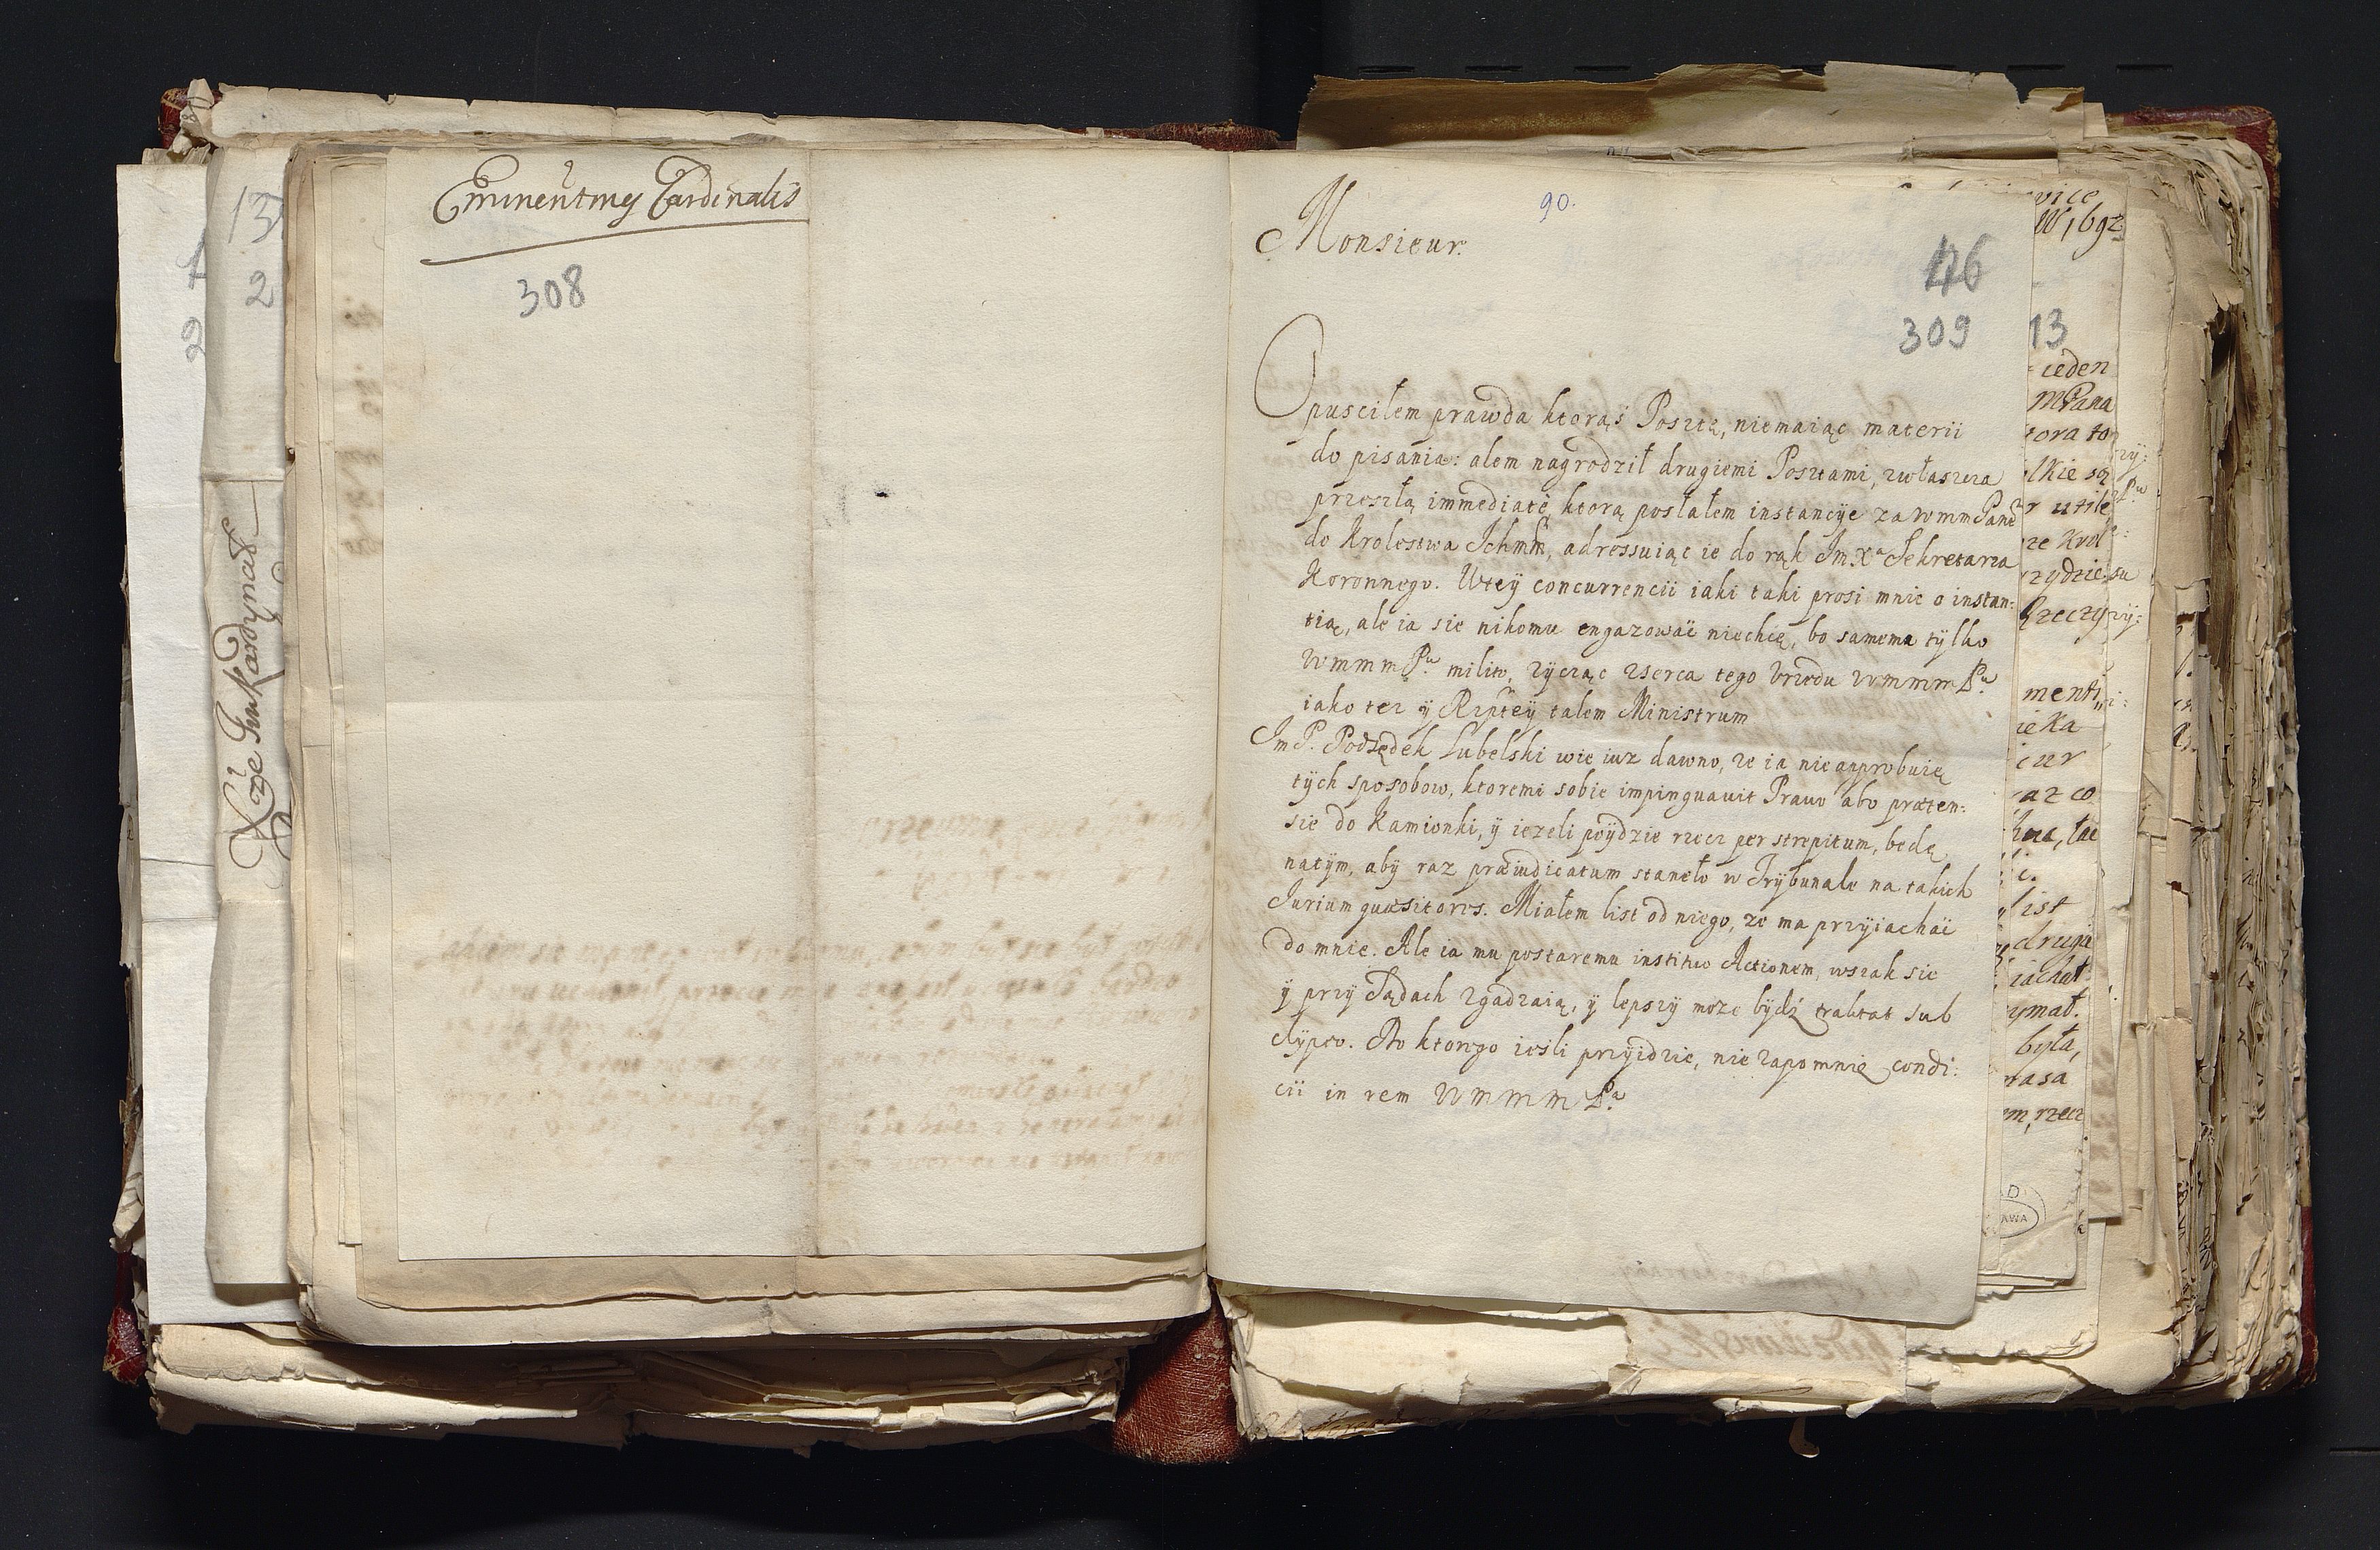 Eminentmg Cardinalis
308
13
2
2
Xże Jmć Kardynał
Monsieur.
90.
46
309
Opuscilem prawda ktorąś Posztę, niemaiąc materii
do pisania: alem nagrodził drugiemi Posztami, zwłaszcza
przeszłą immediatè, ktorą posłałem instancye za WmmPanē
do Krolestwa Ichmm, adressuiąc ie do rąk Jm Xa Sekretarza
Koronnego. Wtey concurrencii iaki taki prosi mnie o instan:
tią, ale ia sie nikomu engazować niechcę, bo samemu tylko
Wmmm Pu milito, życząc zserca tego Urzędu Wmmm Pu
iako tez y Rzptey talem Ministrum
Jm P. Podsędek Lubelski wie iuz dawno, ze ia nie approbuię
tych sposobow, ktoremi sobie impinguauit Prawo abo præten:
sie do Kamionki, y iezeli poydzie rzecz per strepitum, będę
natym, aby raz præiudicatum staneło w Trybunale na takich
Jurium quæsitores. Miałem list od niego, ze ma przyiachać
do mnie. Ale ia mu postaremu instituo Actionem, wszak sie
y przy Sądach zgadzaią, y lepszy moze bydź traktat sub
clypeo. Do ktorego iesli przyidzie, nie zapomnię condi:
cii in rem Wmmm Pa
vice
W 1692
13
ieden
MPana
tora to
lkie są
r utile
ze Krol
zydzie
Rzeczy
menti
ieka
iur
az co
list
druga
iachał
ymał.
była,
m, rzecz